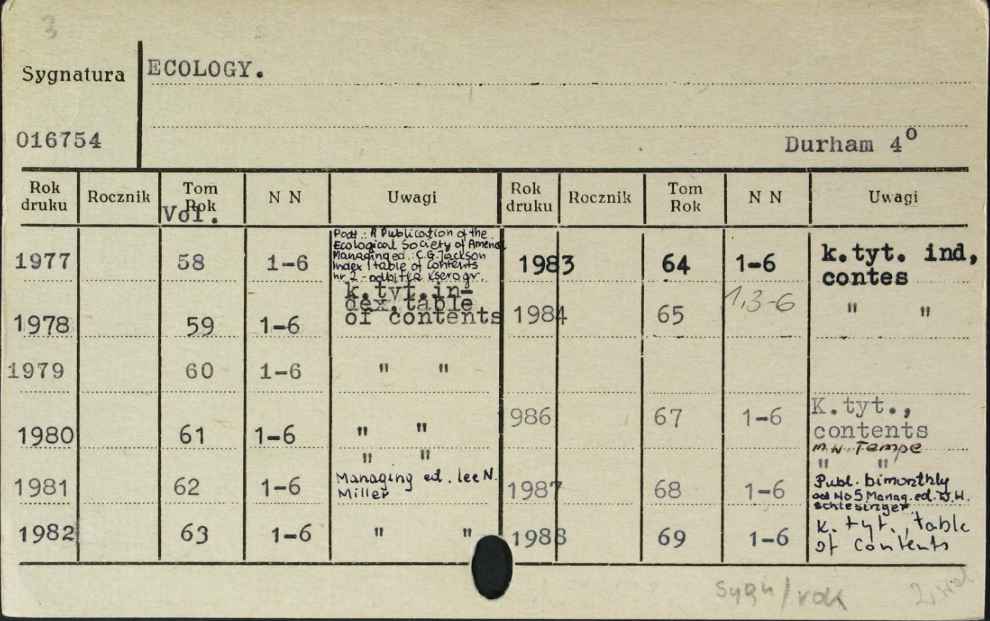 3
Sygnatura ECOLOGY.
016754 Durham 4o
Rok druku Rocznik Tom Rok Vol. N N Uwagi Rok druku Rocznik Tom Rok N N Uwagi
Podt.: A Publication of the
Ecological Society of America
Managing ed.: C.G. Jackson
Index i table of contents
nr 2 - odbitka kserogr.
1977 58 1-6
k.tyt.in-
dex,table
of contents
1978 59 1-6
1979 60 1-6 " "
1980 61 1-6 " "
" "
1981 62 1-6 Managing ed. Lee N.
Miller
1982 63 1-6 " "
1983 64 1-6 k.tyt. ind,
contes
1984 65 1,3-6 " "
986 67 1-6 K.tyt.,
contents
M.W. Tempe
" "
1987 68 1-6 Publ. bimonthly
od No 5 Manag. ed. W.H.
Schlesinger
1988 69 1-6 k. tyt., table
of contents
sygn/rok